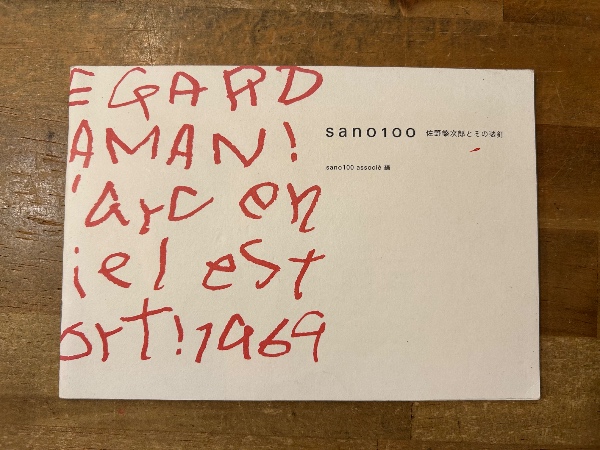 EGARD
AMAN!
'arc en
iel est
ort! 1969
sano100 佐野繁次郎とその装釘
sano100 associé 編